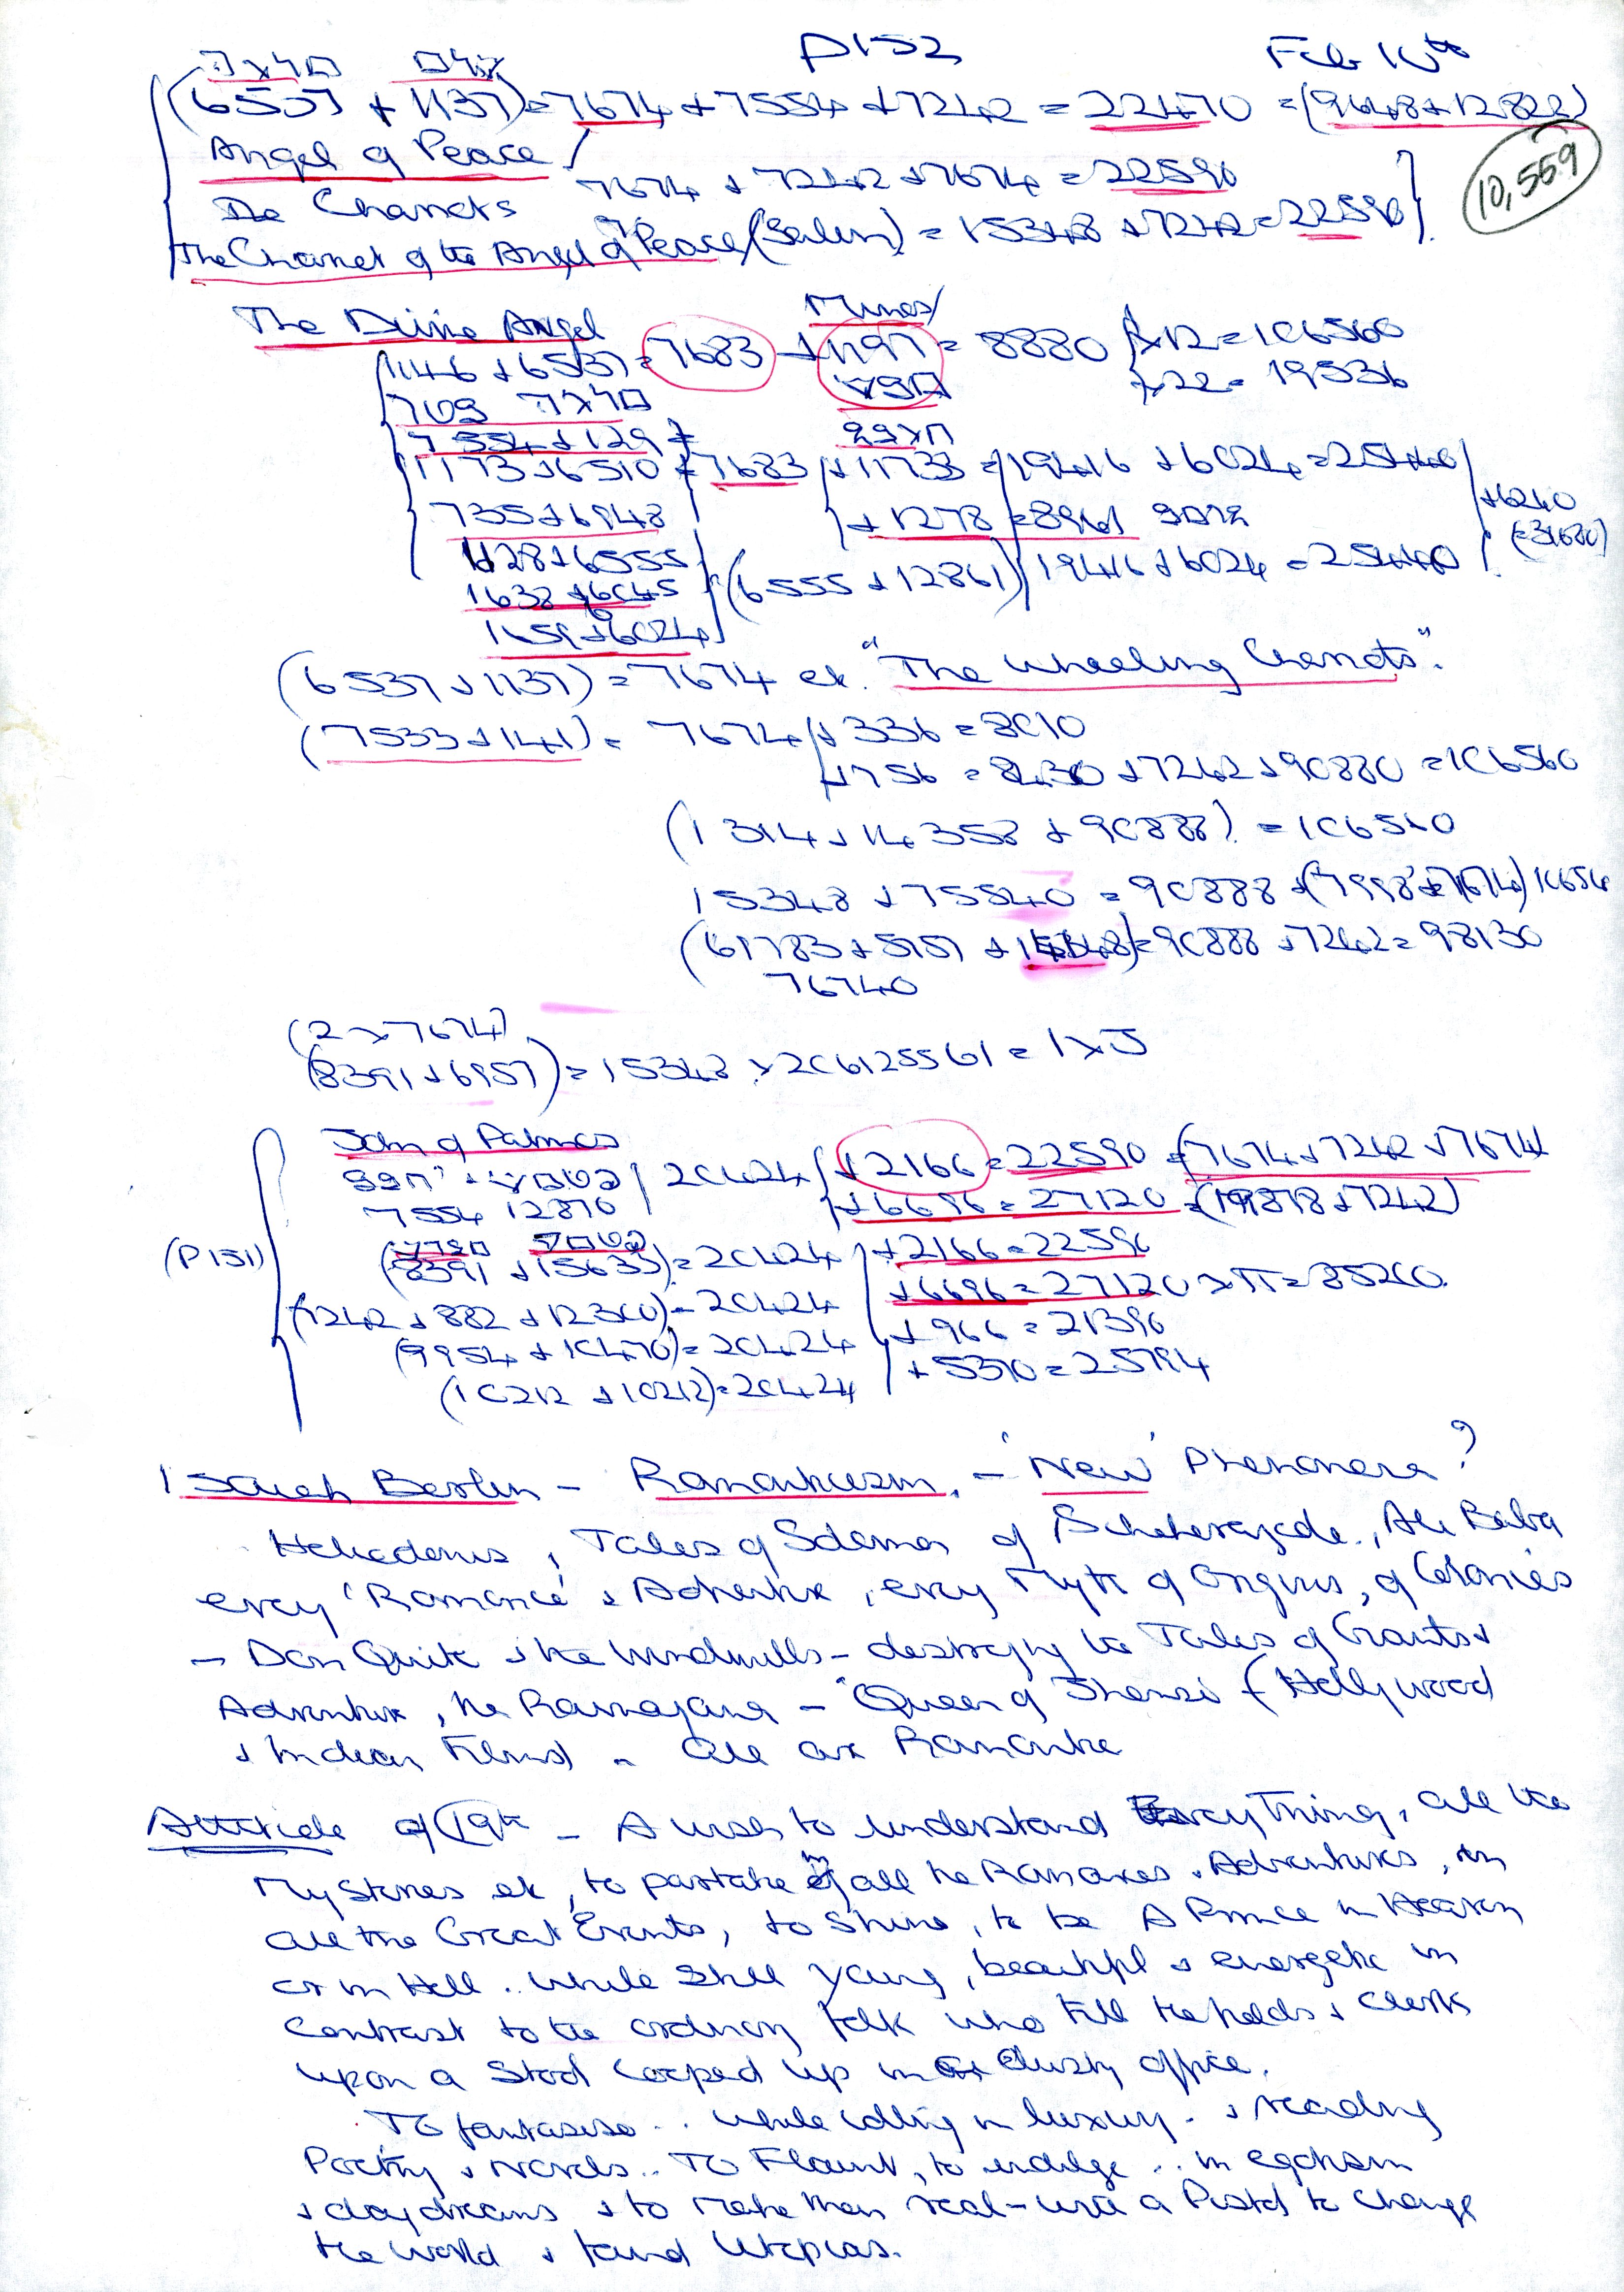 p152 Feb 10th
(6537 + 1137) = 7674 + 7554 + 7242 = 22470 = (9648 + 12822)
10,559
Angel of Peace /
7674 + 7242 + 7674 = 22590
The Chariots
The Chariot of the Angel of Peace (Salem) = 15348 + 7242 = 22590
The Divine Angel
(1146 + 6537) = 7683 + 1197 = 8880 } x12 = 106560
x22 = 19536
7554 + 129 =
1173 + 6510 = 7683 + 11733 = 19416 + 6024 = 25440
+6240
735 + 6948 + 1278 = 8961
(=31680)
1128 + 6555 (6555 + 12861) 19416 + 6024 = 25440
1638 + 6045
1659 + 6024
(6537 + 1137) = 7674 ek. "The Wheeling Chariots".
(7533 + 141) = 7674 + 336 = 8010
+756 = 8430 + 7242 + 90880 = 106560
(1314 + 14358 + 90888) = 106560
15348 + 75540 = 90888 + (7998 + 7674) 10656
= 90888 + 7242 = 98130
76740
(2 x 7674)
(8391 + 6957) = 15348 x 206125561 = 1 x 5
John of Patmos
20424 + 2166 = 22590 = (7674 + 7242 + 7674)
7554 12870
+6696 = 27120 = (19878 + 7242)
(P151)
= 20424 + 2166 = 22590
+6696 = 27120 x π = 85200
(7242 + 882 + 12300) = 20424
+966 = 21390
(9954 + 10470) = 20424
+5370 = 25794
(10212 + 10212) = 20424
Isaiah Berlin - Romanticism. - 'New' Phenomena?
Heliodorus, Tales of Sdemon of Scheherazade, Ali Baba
every 'Romance' & Adventure, every Myth of Origins, of Colonies
- Don Quite & the Windmills - destroying the Tales of Giants &
Adventure, the Ramayana - "Queen of Shensi (Hollywood
& Indian Films) - all are Romantic
Attitude of 19th - A wish to understand EveryThing, all the
Mysteries ek, to partake in all the Romances & Adventures, in
all the Great Events, to Shine, to be A Prince in Heaven
or in Hell.. while Still young, beautiful & energetic in
Contrast to the ordinary folk who till the fields & clerks
upon a Stool Cooped up in a dusty office.
To fantasise.. while lolling in luxury - & reading
Poetry & Novels.. To Flaunt, to indulge.. in egotism
& daydreams & to make them real - with a Pistol to change
the World & found Utopias.